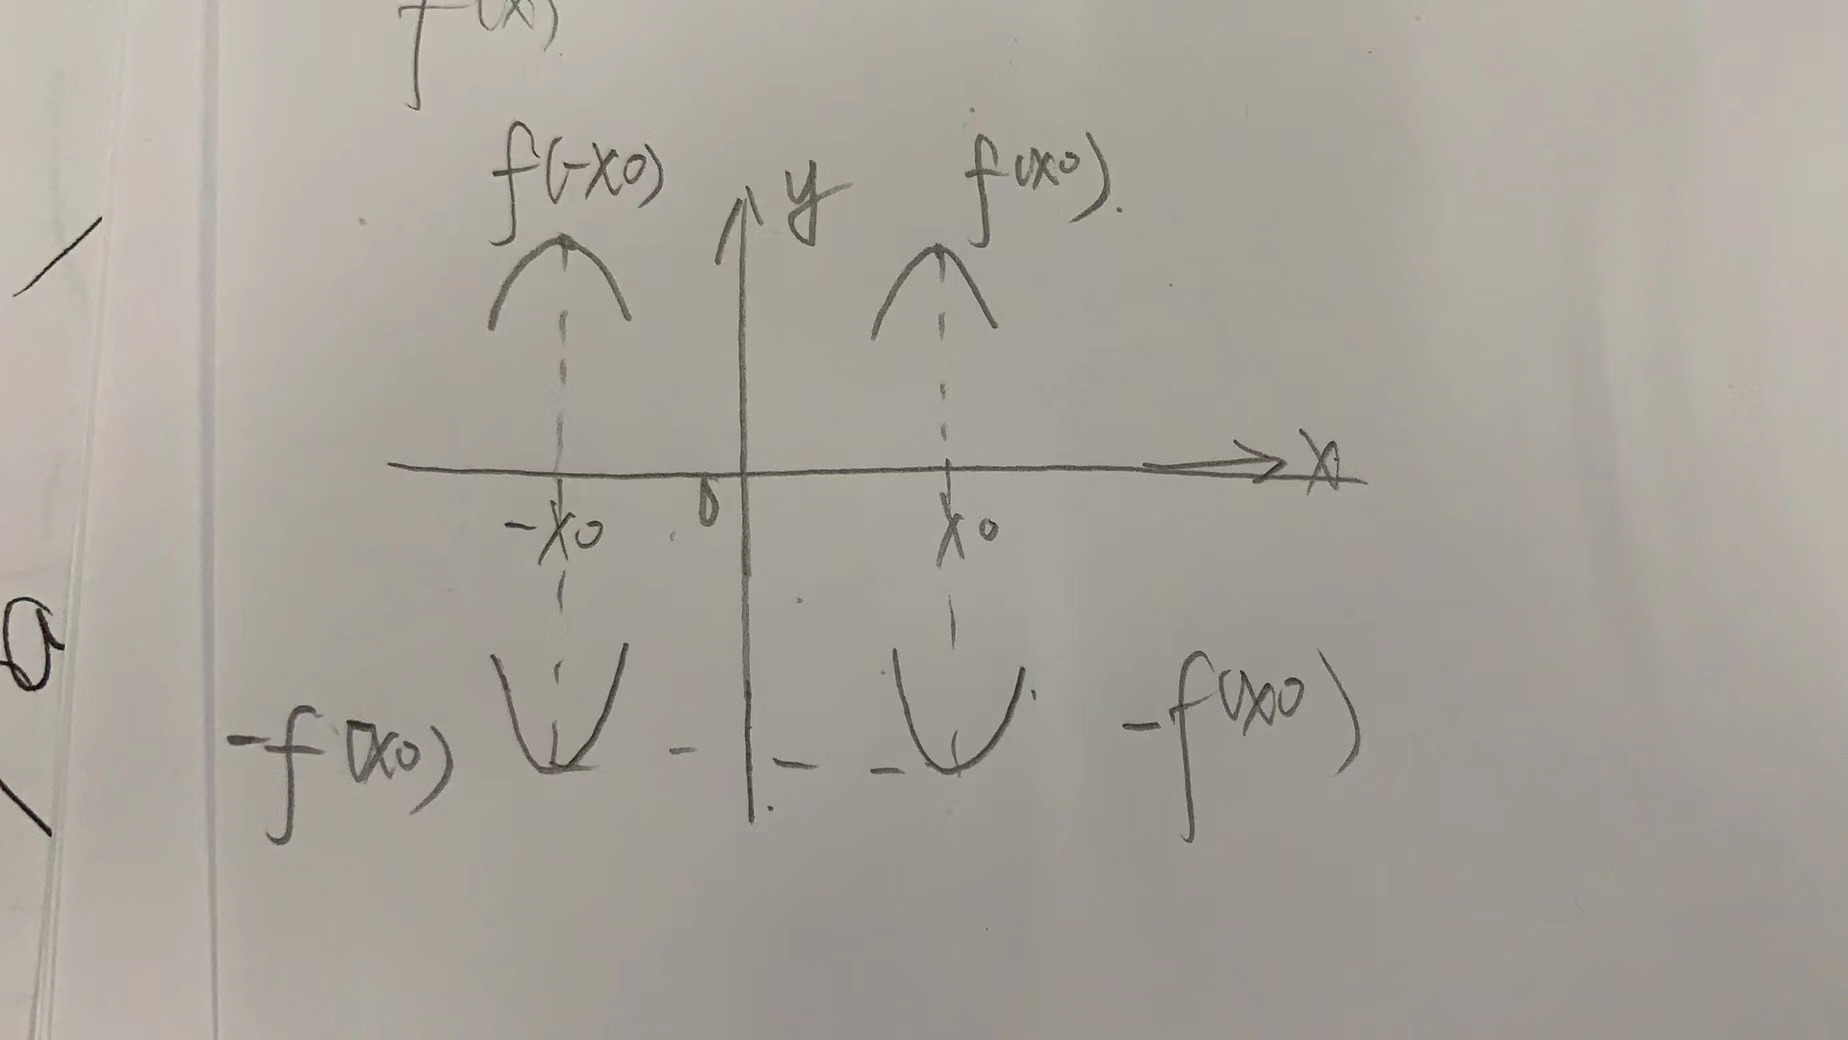 f(x)
f(-x0)
y
f(x0).
x
0
-x0
x0
-f(x0)
-f(x0)
a